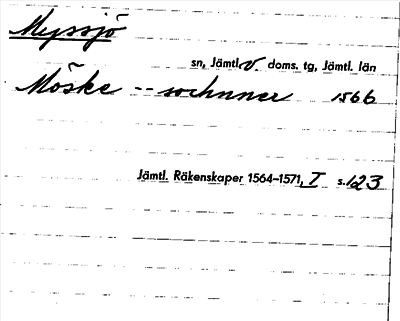 Myssjö
sn, Jämtl. v. doms. tg, Jämtl. län
Möske -- sochnner 1566
Jämtl. Räkenskaper 1564–1571, I s. 123